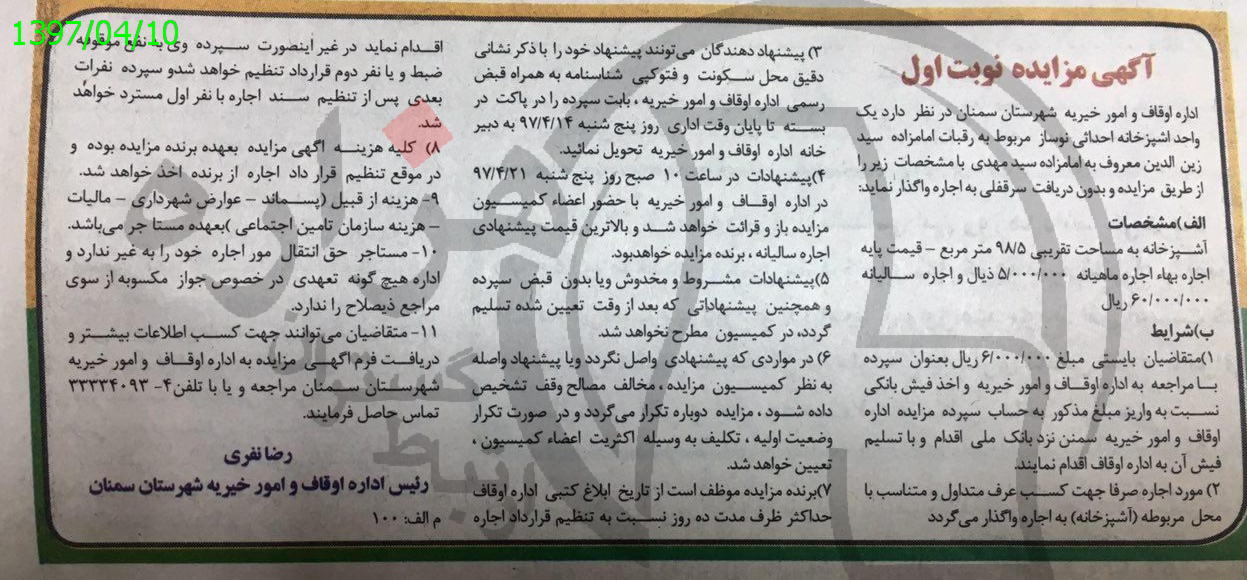 1397/04/10
آگهی مزایده نوبت اول
اداره اوقاف و امور خیریه شهرستان سمنان در نظر دارد یک
واحد اشپزخانه احداثی نوساز مربوط به رقبات امامزاده سید
زین الدین معروف به امامزاده سید مهدی با مشخصات زیر را
از طریق مزایده و بدون دریافت سرقفلی به اجاره واگذار نماید:
الف)مشخصات
آشپزخانه به مساحت تقریبی ۹۸/۵ متر مربع – قیمت پایه
اجاره بهاء اجاره ماهیانه ۵/۰۰۰/۰۰۰ ذیال و اجاره سالیانه
۶۰/۰۰۰/۰۰۰ ریال
ب)شرایط
۱)متقاضیان بایستی مبلغ ۶/۰۰۰/۰۰۰ ریال بعنوان سپرده
با مراجعه به اداره اوقاف و امور خیریه و اخذ فیش بانکی
نسبت به واریز مبلغ مذکور به حساب سپرده مزایده اداره
اوقاف و امور خیریه سمنن نزد بانک ملی اقدام و با تسلیم
فیش آن به اداره اوقاف اقدام نمایند.
۲) مورد اجاره صرفا جهت کسب عرف متداول و متناسب با
محل مربوطه (آشپزخانه) به اجاره واگذار می گردد
۳) پیشنهاد دهندگان می توانند پیشنهاد خود را با ذکر نشانی
دقیق محل سکونت و فتوکپی شناسنامه به همراه قبض
رسمی اداره اوقاف و امور خیریه ، بابت سپرده را در پاکت در
بسته تا پایان وقت اداری روز پنج شنبه ۹۷/۴/۱۴ به دبیر
خانه اداره اوقاف و امور خیریه تحویل نمائید.
۴)پیشنهادات در ساعت ۱۰ صبح روز پنج شنبه ۹۷/۴/۲۱
در اداره اوقاف و امور خیریه با حضور اعضاء کمیسیون
مزایده باز و قرائت خواهد شد و بالاترین قیمت پیشنهادی
اجاره سالیانه ، برنده مزایده خواهدبود.
۵)پیشنهادات مشروط و مخدوش ویا بدون قبض سپرده
و همچنین پیشنهاداتی که بعد از وقت تعیین شده تسلیم
گردد، در کمیسیون مطرح نخواهد شد.
۶) در مواردی که پیشنهادی واصل نگردد ویا پیشنهاد واصله
به نظر کمیسیون مزایده ، مخالف مصالح وقف تشخیص
داده شود ، مزایده دوباره تکرار می گردد و در صورت تکرار
وضعیت اولیه ، تکلیف به وسیله اکثریت اعضاء کمیسیون ،
تعیین خواهد شد.
۷)برنده مزایده موظف است از تاریخ ابلاغ کتبی اداره اوقاف
حداکثر ظرف مدت ده روز نسبت به تنظیم قرارداد اجاره
اقدام نماید در غیر اینصورت سپرده وی به نفع موقوفه
ضبط و یا نفر دوم قرارداد تنظیم خواهد شدو سپرده نفرات
بعدی پس از تنظیم سند اجاره با نفر اول مسترد خواهد
شد.
۸) کلیه هزینه اگهی مزایده بعهده برنده مزایده بوده و
در موقع تنظیم قرار داد اجاره از برنده اخذ خواهد شد.
۹- هزینه از قبیل (پسماند – عوارض شهرداری – مالیات
– هزینه سازمان تامین اجتماعی )بعهده مستا جر می باشد.
۱۰- مستاجر حق انتقال مور اجاره خود را به غیر ندارد و
اداره هیچ گونه تعهدی در خصوص جواز مکسوبه از سوی
مراجع ذیصلاح را ندارد.
۱۱- متقاضیان می توانند جهت کسب اطلاعات بیشتر و
دریافت فرم اگهی مزایده به اداره اوقاف و امور خیریه
شهرستان سمنان مراجعه و یا با تلفن ۴- ۳۳۳۳۴۰۹۳
تماس حاصل فرمایند.
رضا نفری
رئیس اداره اوقاف و امور خیریه شهرستان سمنان
م الف: ۱۰۰
هزاره